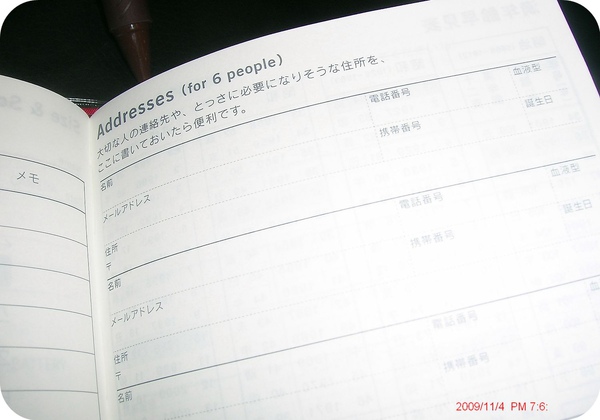 Addresses (for 6 people)
大切な人の連絡先や、とっさに必要になりそうな住所を、
ここに書いておいたら便利です。
メモ
名前
電話番号
血液型
メールアドレス
携帯番号
誕生日
住所
〒
名前
電話番号
血液型
メールアドレス
携帯番号
誕生日
住所
〒
名前
電話番号
血
携帯番号
2009/11/4 PM 7:6: